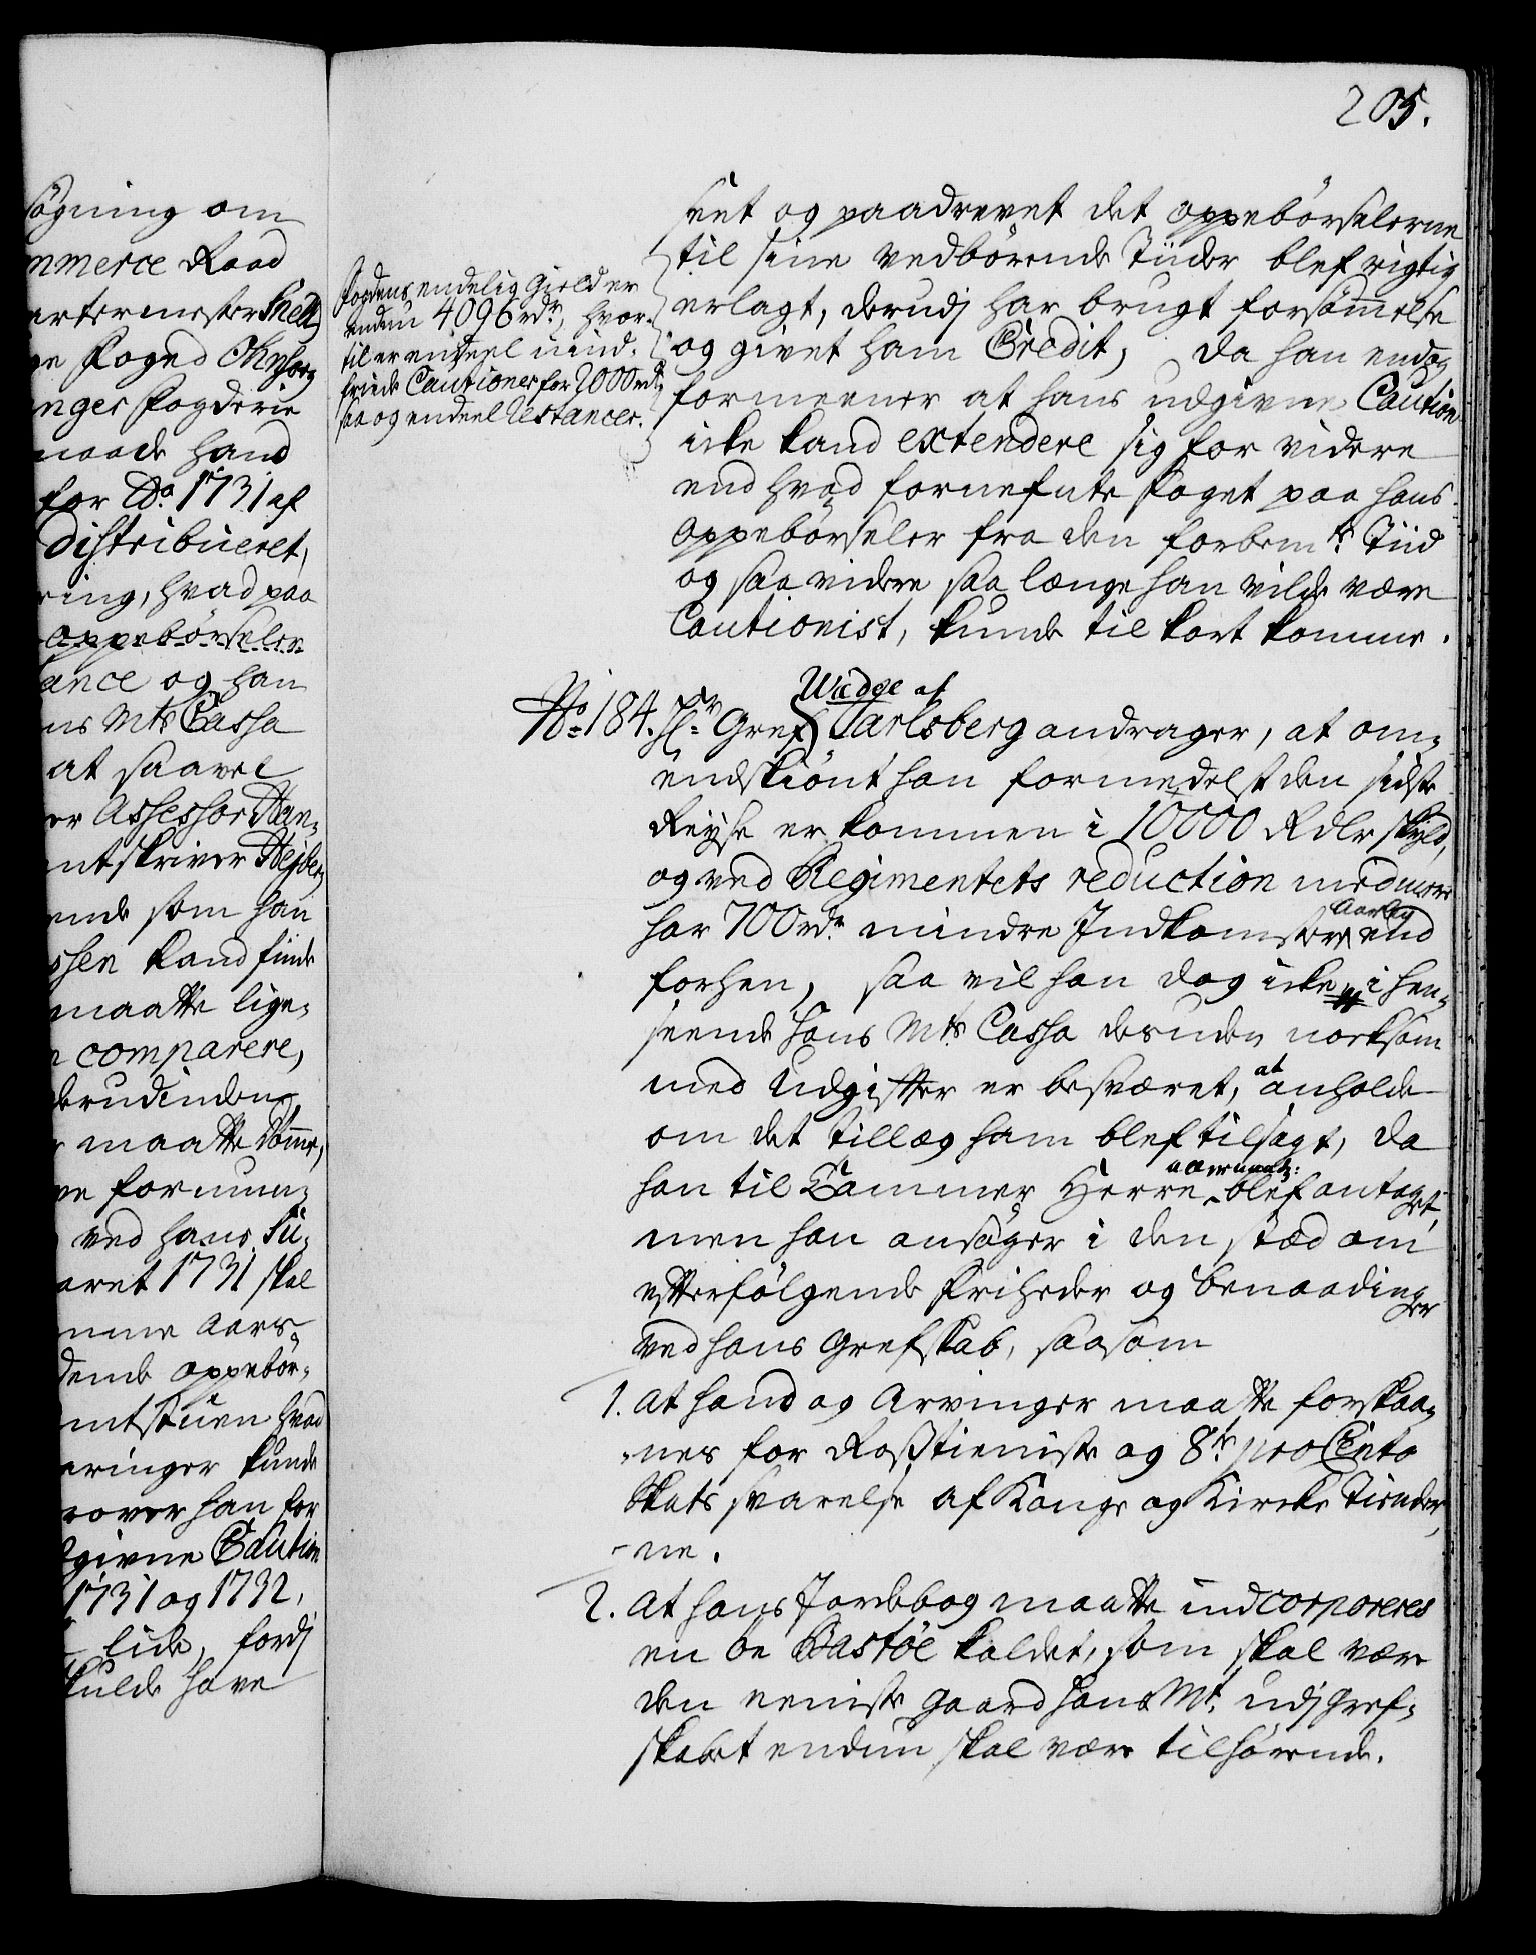 205.
søgning om
mmerce Raad
artermester Snell
ge Foged Ohnsorg
nges Fogderie
maade hand
for Ao. 1731 af
distribueret,
ring, hvad paa
oppebörseler
ance og han
ns Mts Cassa
at saavel
or Assessor Han-
ntskriver Hejberg
ende som han
ssen kand finde
maatte lige-
n comparere,
derudinden
maatte dömme,
ve formuen-
ved hans Su-
aaret 1731 skal
mme Aars
dende oppebör-
mtstuen hvad
eringer kunde
rover han for
dgivne Caution
1731 og 1732.
lide, fordj
kulde have
Fogdens endelig Gield er
endnu 4096 rdr, hvor-
til er endeel uind-
friede Cautioner for 2000 rdr
saa og endeel Restancer.
seet og paadrevet det oppebörselerne
til sine vedbörende Tiider blef rigtig
erlagt, derudj har brugt forsömmelse
og givet ham Credit, da han endog
formeener at hans udgivne Caution
icke kand extendere sig for videre
end hvad fornefnte Foget paa hans
oppebörseler fra den forbemte Tiid
og saa videre saa længe han vilde være
Cautionist, kunde til kort komme.
No. 184. Hr. Gref Wedge af Jarlsberg andrager, at om-
endskiönt han formedelst den sidste
Reyse er kommen i 10000 Rdlr skyld,
og ved Regimentets reduction med meere
har 700 rdr. mindre Indkomster Aarlig end
forhen, saa vil han dog icke i hen-
seende Hans Mts Cassa desuden noeksom
med Udgifter er besværet, at anholde
om det tillæg ham blef tilsagt, da
han til Cammer Herre allernaadg: blef antaget,
men han ansöger i den stæd om
efterfölgende Friheder og benaadinger
ved hans Grefskab, saasom
1. At hand og Arvinger maatte forskaa-
nes for Rosstieniste og 8te pro Cento
Skats svarelse af Konge og Kirke Tiender-
ne.
2. At hans Jordebog maatte indcorporeres
en öe Bastöe kaldet, som skal være
den eeniste gaard Hans Mt. udj Gref-
skabet endnu skal være tilhörende.